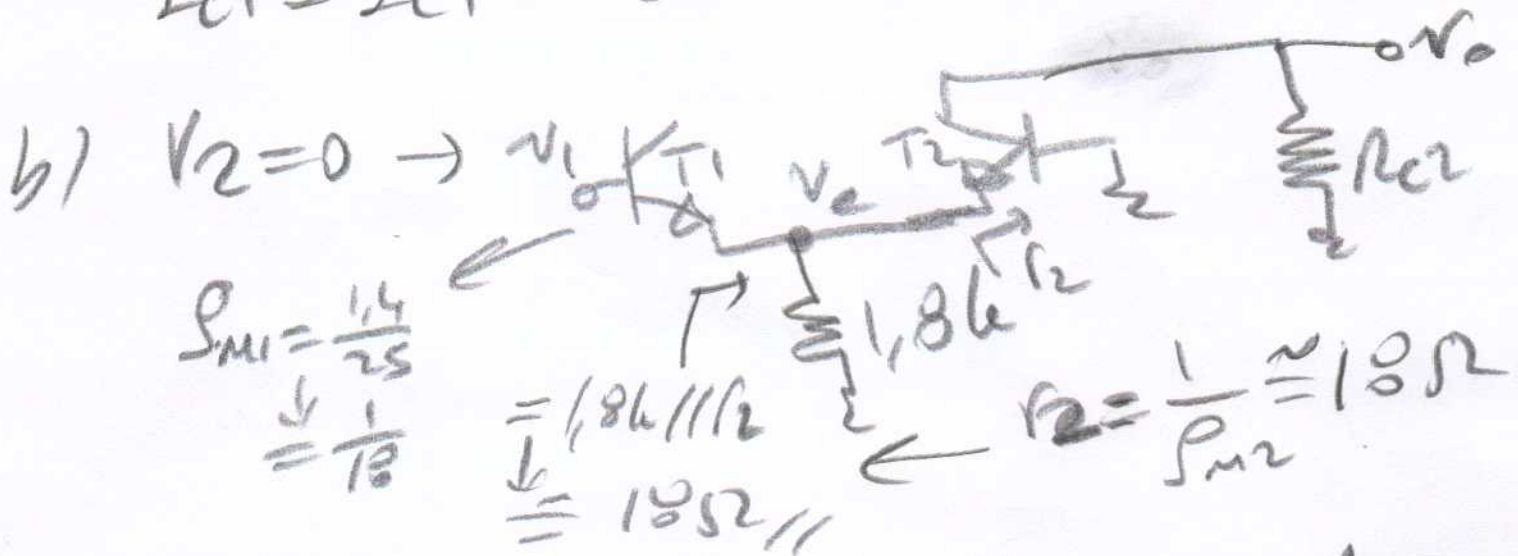 b) V2=0 → v1 T1 Ve T2 vo
Rc2
1,8k r2
gm1 = 1,4/25
= 1/18
= 1,8k//r2
≅ 18Ω //
r2 = 1/gm2 ≅ 18Ω